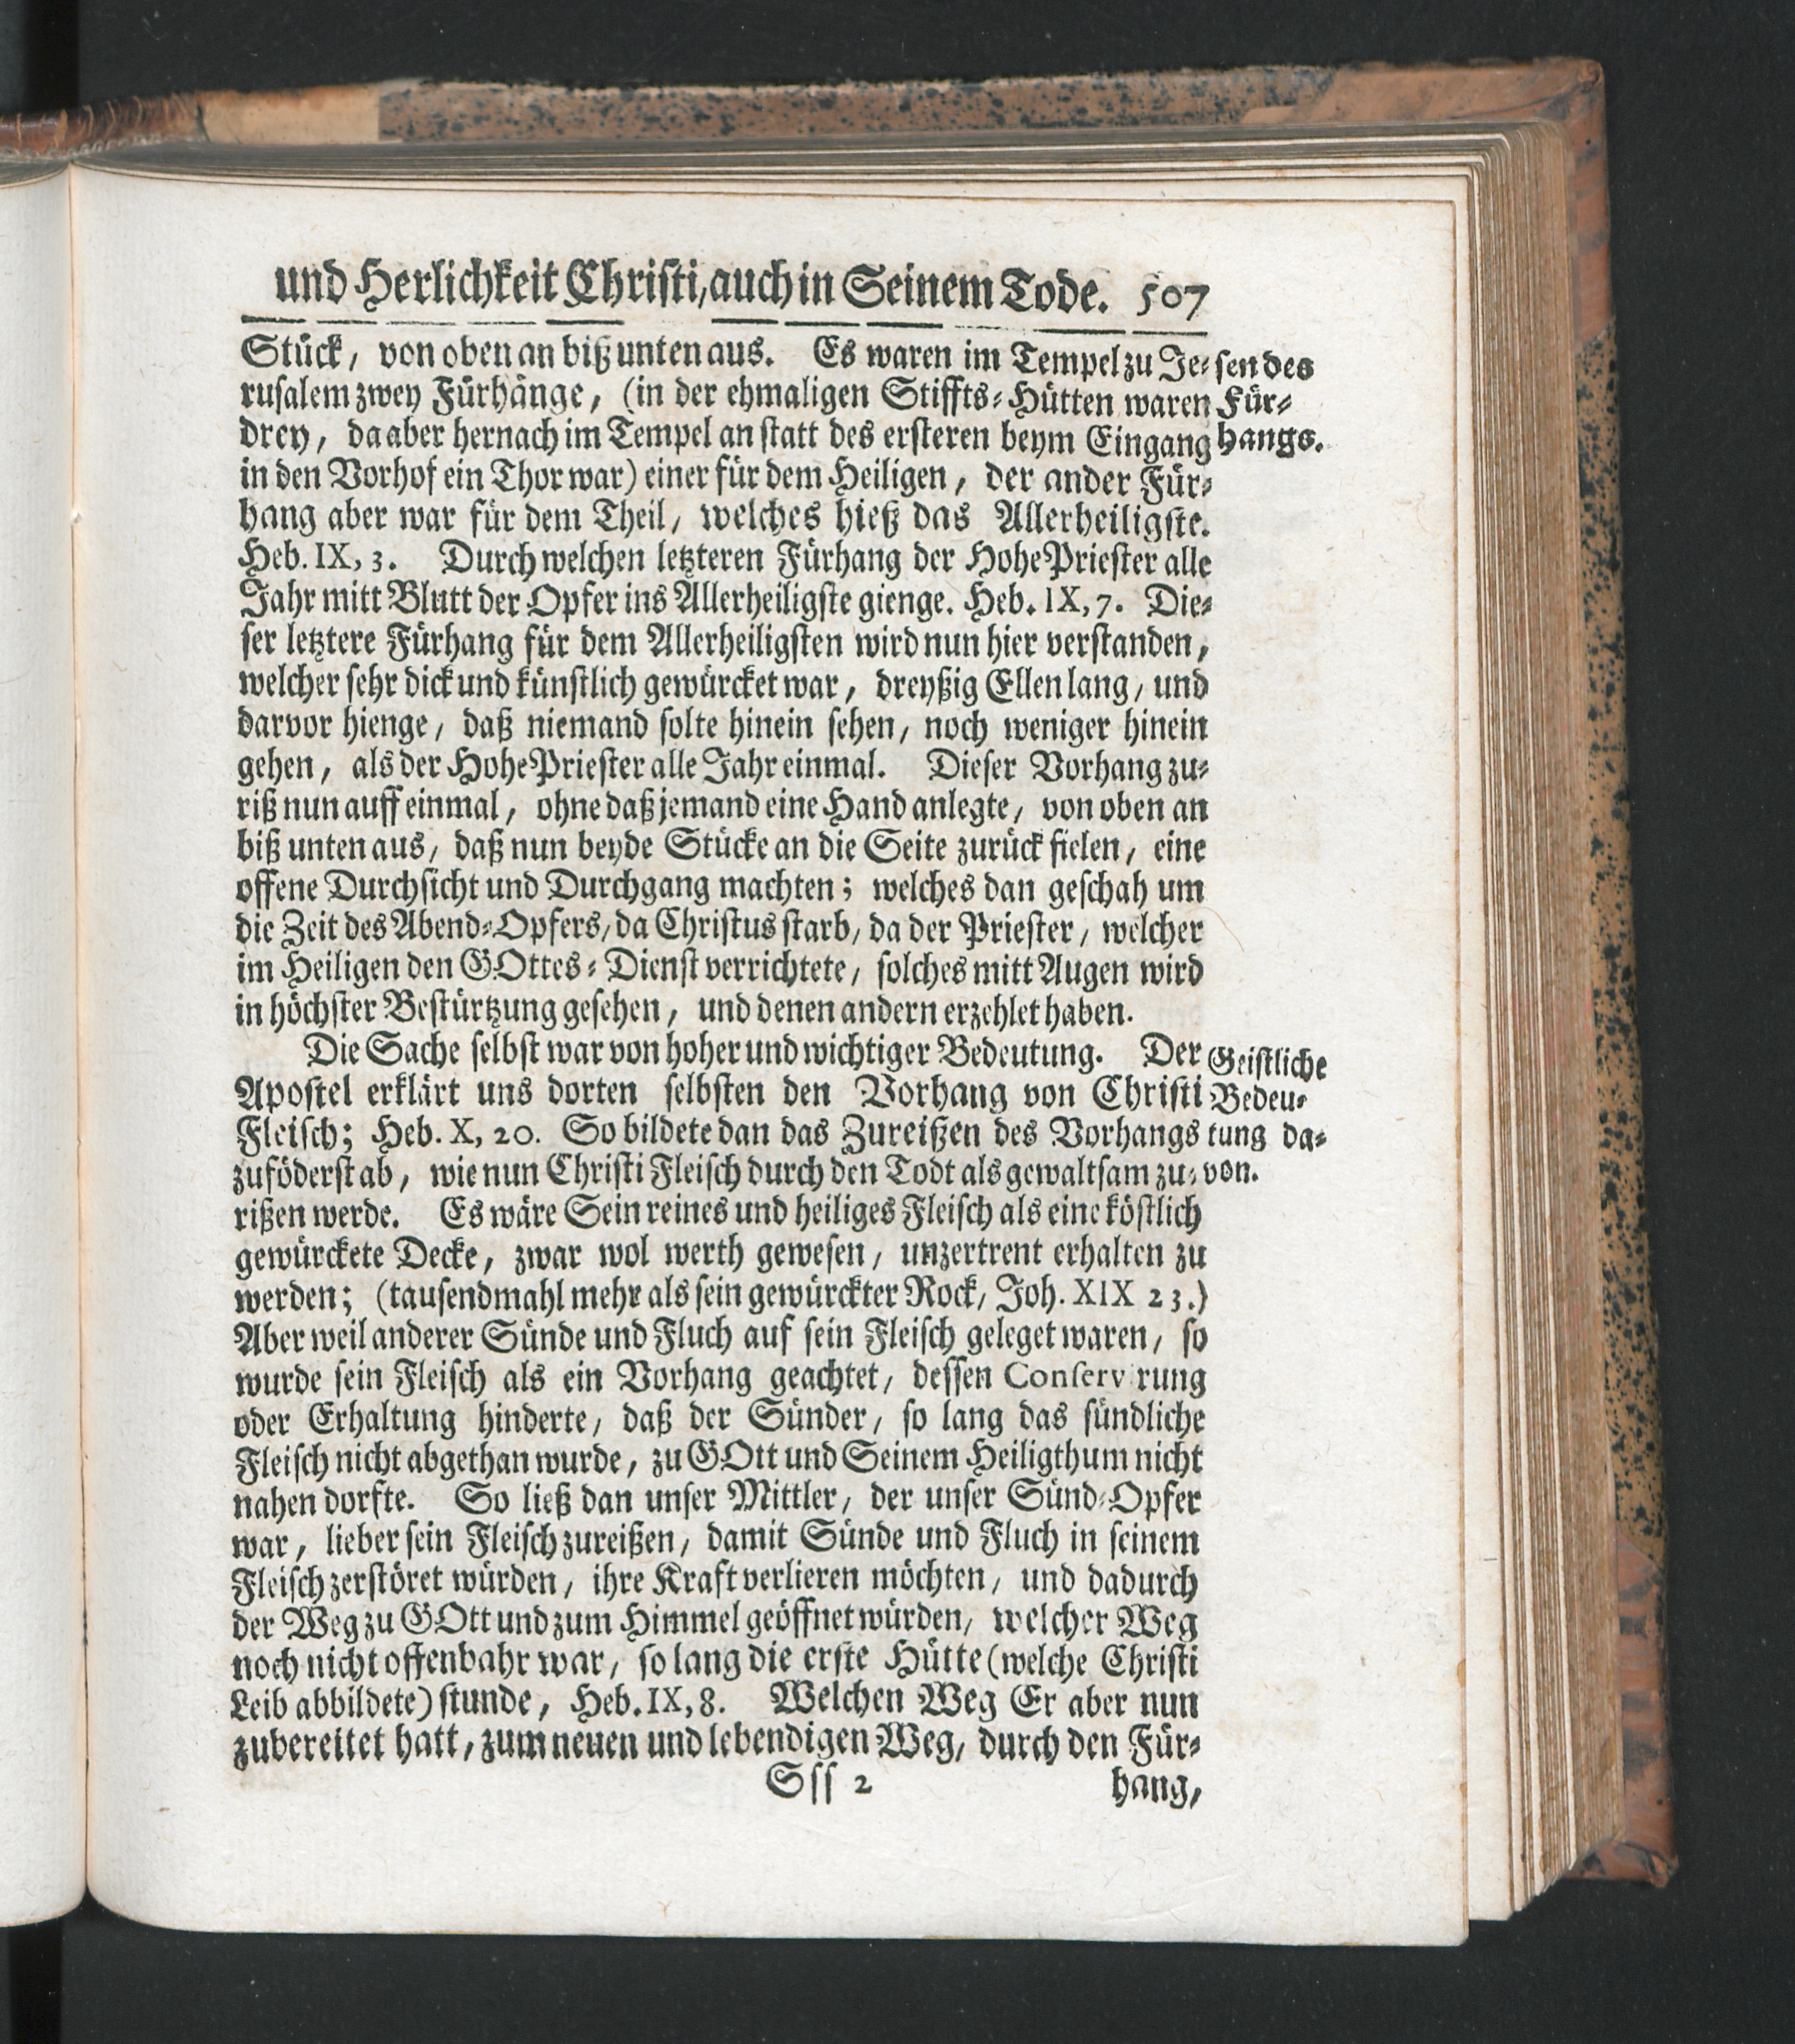 und Herlichkeit Christi, auch in Seinem Tode. 507
Stück, von oben an biß unten aus. Es waren im Tempel zu Je-
rusalem zwey Fürhänge, (in der ehmaligen Stiffts-Hütten waren
drey, da aber hernach im Tempel an statt des ersteren beym Eingang
in den Vorhof ein Thor war) einer für dem Heiligen, der ander Für-
hang aber war für dem Theil, welches hieß das Allerheiligste.
Heb. IX, 3. Durch welchen letzteren Fürhang der HohePriester alle
Jahr mitt Blutt der Opfer ins Allerheiligste gienge. Heb. IX, 7. Die-
ser letztere Fürhang für dem Allerheiligsten wird nun hier verstanden,
welcher sehr dick und künstlich gewürcket war, dreyßig Ellen lang, und
darvor hienge, daß niemand solte hinein sehen, noch weniger hinein
gehen, als der HohePriester alle Jahr einmal. Dieser Vorhang zu-
riß nun auff einmal, ohne daß jemand eine Hand anlegte, von oben an
biß unten aus, daß nun beyde Stücke an die Seite zurück fielen, eine
offene Durchsicht und Durchgang machten; welches dan geschah um
die Zeit des Abend-Opfers, da Christus starb, da der Priester, welcher
im Heiligen den GOttes-Dienst verrichtete, solches mitt Augen wird
in höchster Bestürtzung gesehen, und denen andern erzehlet haben.
sen des
Für-
hangs.
Die Sache selbst war von hoher und wichtiger Bedeutung. Der
Apostel erklärt uns dorten selbsten den Vorhang von Christi
Fleisch; Heb. X, 20. So bildete dan das Zureißen des Vorhangs
zuföderst ab, wie nun Christi Fleisch durch den Todt als gewaltsam zu-
rißen werde. Es wäre Sein reines und heiliges Fleisch als eine köstlich
gewürckete Decke, zwar wol werth gewesen, unzertrent erhalten zu
werden; (tausendmahl mehr als sein gewürckter Rock, Joh. XIX 23.)
Aber weil anderer Sünde und Fluch auf sein Fleisch geleget waren, so
wurde sein Fleisch als ein Vorhang geachtet, dessen Conservirung
oder Erhaltung hinderte, daß der Sünder, so lang das sündliche
Fleisch nicht abgethan wurde, zu GOtt und Seinem Heiligthum nicht
nahen dorfte. So ließ dan unser Mittler, der unser Sünd-Opfer
war, lieber sein Fleisch zureißen, damit Sünde und Fluch in seinem
Fleisch zerstöret würden, ihre Kraft verlieren möchten, und dadurch
der Weg zu GOtt und zum Himmel geöffnet würden, welcher Weg
noch nicht offenbahr war, so lang die erste Hütte (welche Christi
Leib abbildete) stunde, Heb. IX, 8. Welchen Weg Er aber nun
zubereitet hatt, zum neuen und lebendigen Weg, durch den Für-
Geistliche
Bedeu-
tung da-
von.
Sss 2 hang,